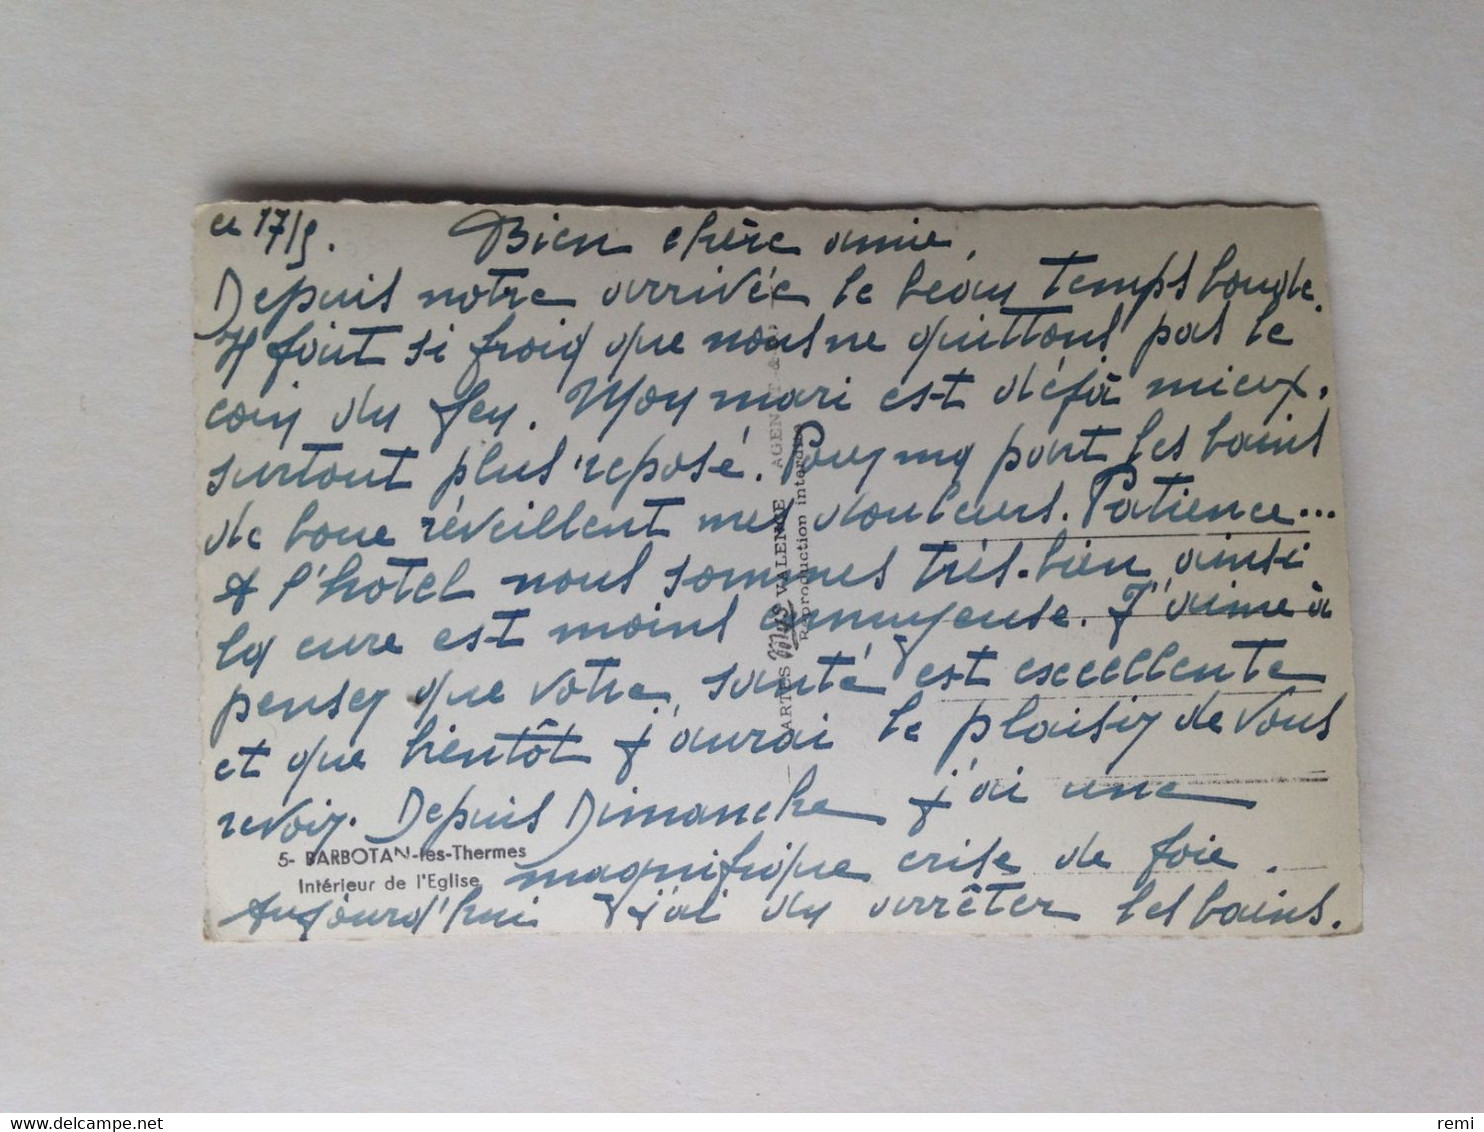 ce 17/9. Bien chère amie,
Depuis notre arrivée le beau temps boude.
Il fait si froid que nous ne quittons pas le
coin du feu. Mon mari est déjà mieux,
surtout plus reposé. Pour ma part les bains
de boue réveillent mes douleurs. Patience...
A l'hôtel nous sommes très bien, ainsi
la cure est moins ennuyeuse. J'aime à
penser que votre santé est excellente
et que bientôt j'aurai le plaisir de vous
revoir. Depuis Dimanche j'ai une
magnifique crise de foie.
Aujourd'hui j'ai du arrêter les bains.
5- BARBOTAN-les-Thermes
Intérieur de l'Eglise
VALENCE
Reproduction interdite
delcampe.net
remi